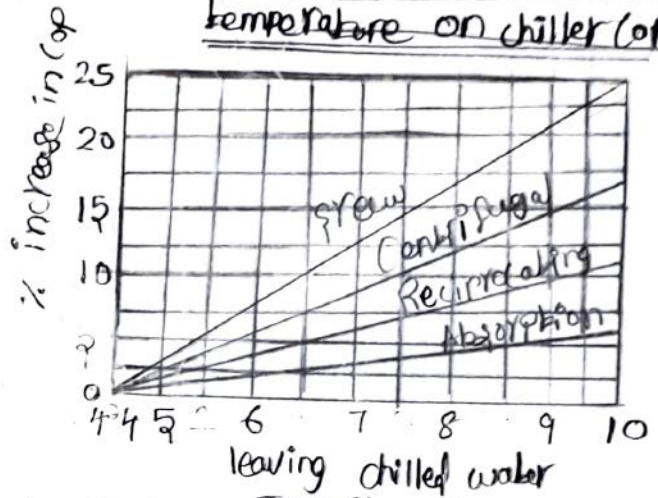 temperature on chiller Cop
% increase in Cop
25
20
15
10
5
0
Screw
Centrifugal
Reciprocating
Absorption
4.4 5 6 7 8 9 10
leaving chilled water